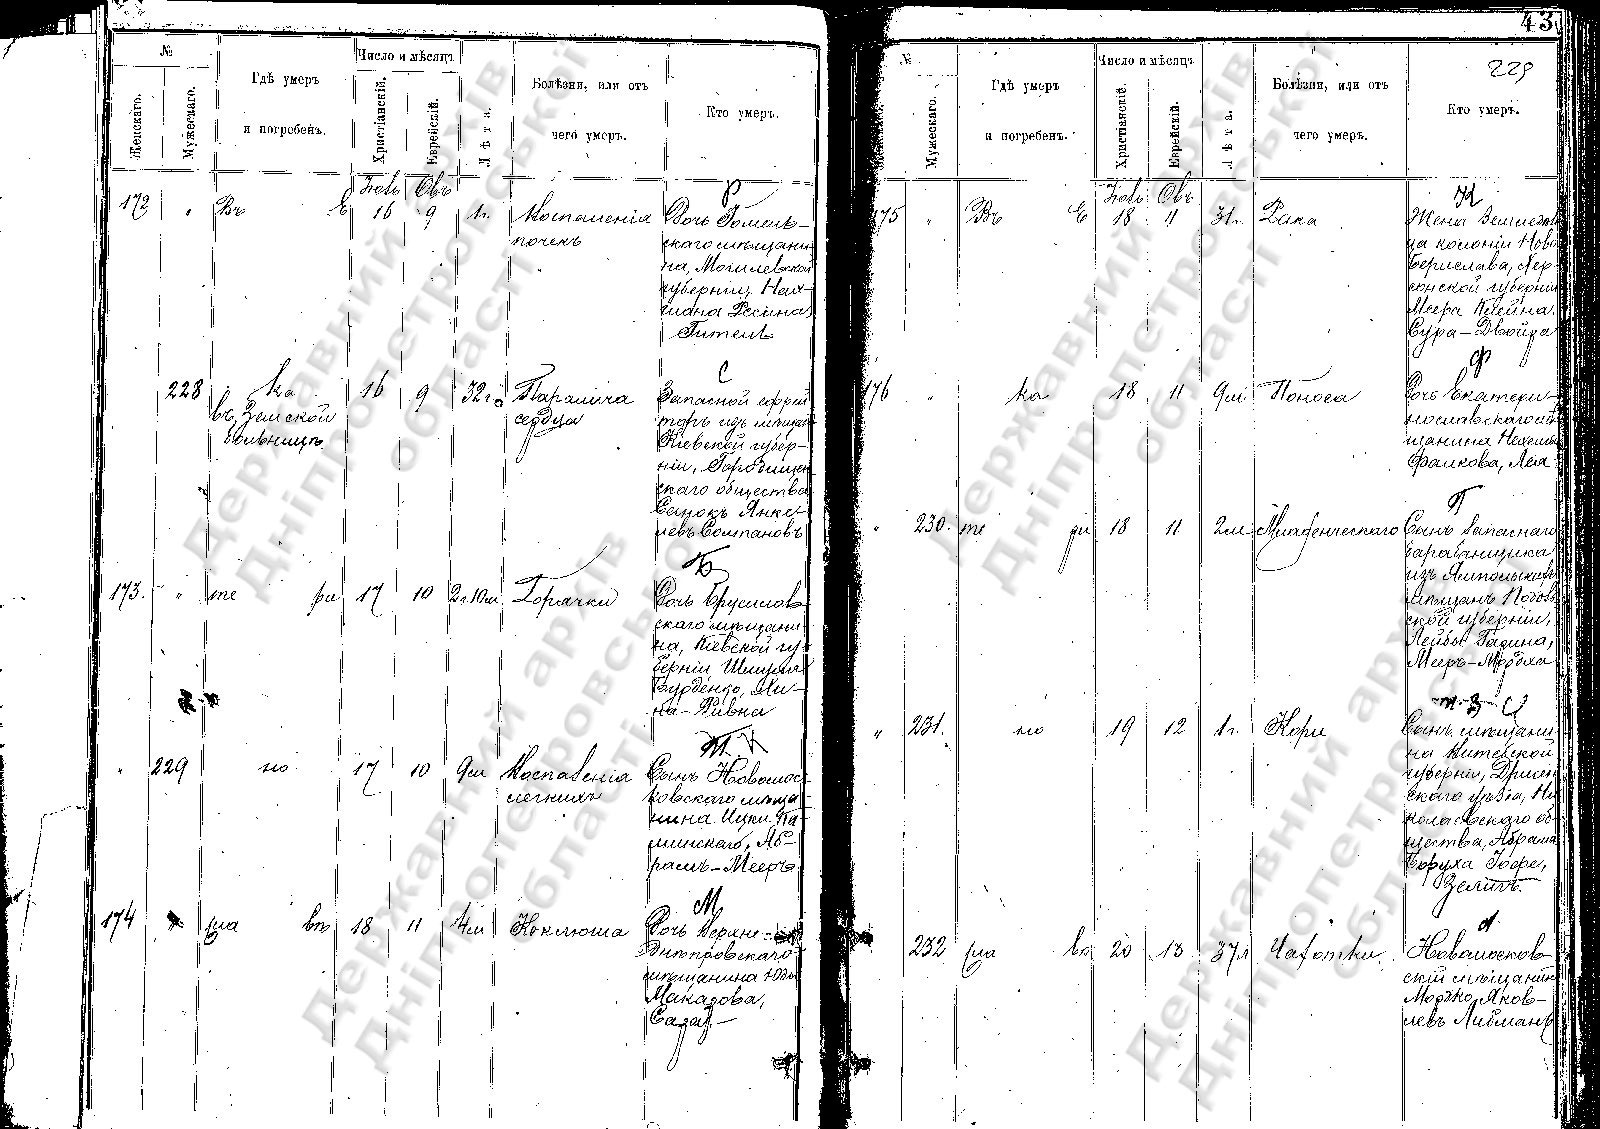 №
Женскаго.
Мужескаго.
Гдѣ умеръ
и погребенъ.
Число и мѣсяцъ
Христіанскій.
Еврейскій.
Лѣта.
Болѣзни, или отъ
чего умеръ.
Кто умеръ.
Р
172 " Въ Е 16 9 1г. Воспаленія
почекъ
Дочь Гомель-
скаго мѣщани-
на, Могилевской
губерніи, Нах-
мана Рестина
Гителъ
С
228 ка 16 9 32г. Паралича
въ Земской
больницѣ
сердца
Запасной ефрей
торъ изъ мѣщанъ
Кіевской губер-
ніи, Городищен
скаго общества
Санокъ Янке-
левъ Солтановъ
Б
173. " те ри 17 10 2г.10м Горячки
Дочь Брусилов-
скаго мѣщани-
на, Кіевской гу-
берніи Шмуля
Бурденко, Хи-
на-Ривка
229 но 17 10 9м Воспаленія
легкихъ
Сынъ Новомос-
ковскаго мѣща-
нина Ицки Ка-
минскаго, Аб-
рамъ-Мееръ
М
174 сла въ 18 11 4м Коклюша
Дочь Верхне-
Днѣпровскаго
мѣщанина Юды
Макарова,
Сара
43
229
№
Мужескаго.
Гдѣ умеръ
и погребенъ.
Число и мѣсяцъ
Христіанскій.
Еврейскій.
Лѣта.
Болѣзни, или отъ
чего умеръ.
Кто умеръ.
К
175 " Въ Е 18 11 31г. Рака
Жена Земледѣль
ца колоніи Ново
Берислава, Хер-
сонской губерніи
Меера Клейна
Сура-Двойра
Ф
176 " ка 18 11 9м Поноса
Дочь Екатери-
нославскаго мѣ
щанина Нехемьи
Фалкова, Лея
П
" 230. те ри 18 11 2м Младенческаго
Сынъ Запаснаго
барабанщика
изъ Ямпольскихъ
мѣщанъ Подоль
ской губерніи,
Лейбы
Мееръ-Мордха
" 231. но 19 12 1г. Кори
Сынъ мѣщани-
на Витебской
губерніи, Дриссен
скаго уѣзда, Ни
колаевскаго об-
щества, Абрама
Боруха Іофе,
Зелигъ
Л
232 сла въ 20 13 37л Чахотки
Новомосков-
скій мѣщанинъ
Мордко Яков-
левъ Либманъ
Державний архів
Дніпропетровської
області